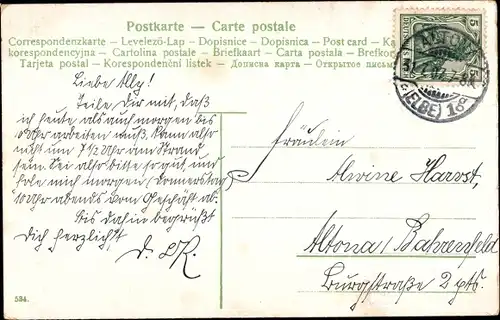 Postkarte — Carte postale
Correspondenzkarte — Levelező-Lap — Dopisnice — Dopisnica — Post card — Ka
korespondencyjna — Cartolina postale — Briefkaart — Carta postala — Brefko
Tarjeta postal — Korespondenční listek — Дописна карта — Открытое письм
5
ALTONA
7-8N
(ELBE) 1a
Liebe Ally!
Teile Dir mit, daß
ich heute als auch morgen bis
8 Uhr arbeiten muß. Kann also
nicht um 7½ Uhr am Strand
sein. Sei also bitte so gut, und
hole mich morgen (Donnerstag)
10 Uhr abends vom Geschäft ab.
Bis dahin begrüßt
Dich herzlichst
Fräulein
Alwine Harvst,
Altona/Bahrenfeld
Burgstraße 2 pts.
534.